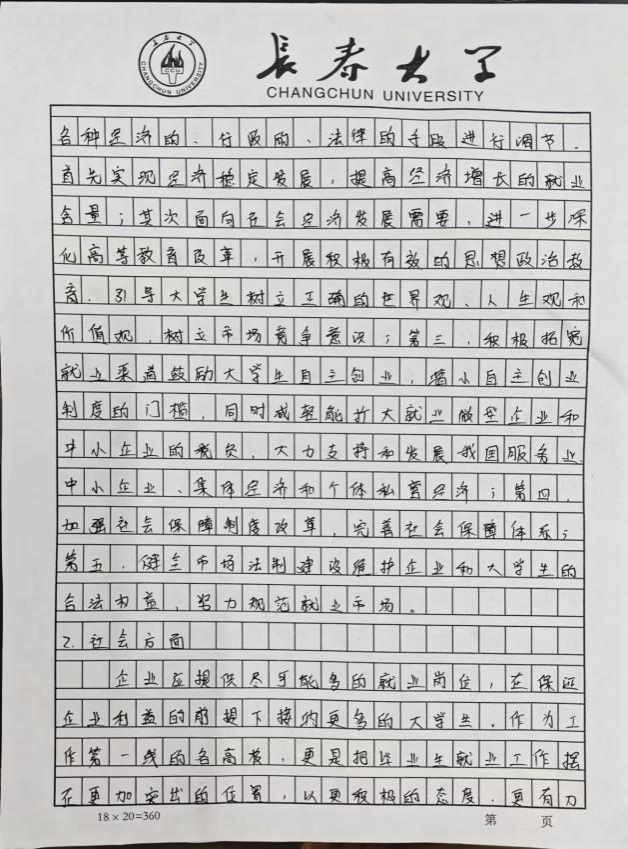 长春大学
CHANGCHUN UNIVERSITY
各种经济的、行政的、法律的手段进行调节.
首先实现经济稳定发展,提高经济增长的就业
含量;其次面向社会经济发展需要,进一步深
化高等教育改革,开展积极有效的思想政治教
育.引导大学生树立正确的世界观、人生观和
价值观,树立市场竞争意识;第三,积极拓宽
就业渠道鼓励大学生自主创业,缩小自主创业
制度的门槛,同时减轻能扩大就业微型企业和
中小企业的税负,大力支持和发展我国服务业、
中小企业、集体经济和个体私营经济;第四,
加强社会保障制度改革,完善社会保障体系;
第五,健全市场法制建设维护企业和大学生的
合法权益,努力规范就业市场。
2.社会方面
企业应提供尽可能多的就业岗位,在保证
企业利益的前提下接纳更多的大学生.作为工
作第一线的各高校,更是把毕业生就业工作摆
在更加突出的位置,以更积极的态度.更有力
18×20=360
第 页